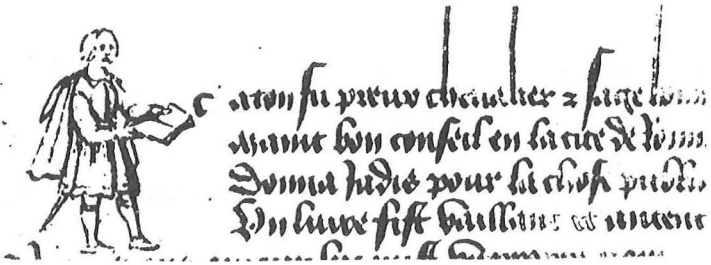 Caton fu preux chevalier & sage hom
Maint bon conseil en la cite de Romm
Donna Jadis pour la chose publi
Un livre fist vaillant et autent